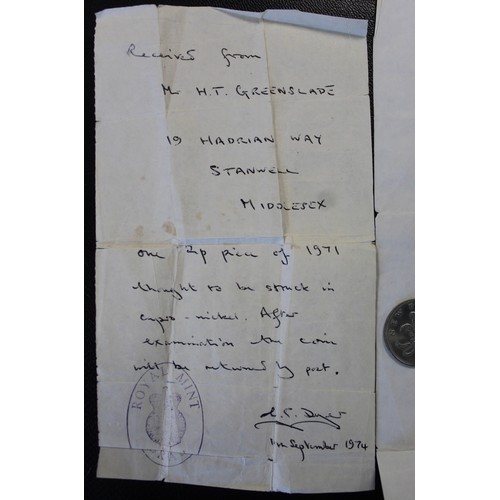 Received from
Mr H.T. GREENSLADE
19 HADRIAN WAY
STANWELL
MIDDLESEX
one 2p piece of 1971
thought to be struck in
cupro-nickel. After
examination the coin
will be returned by post.
ROYAL MINT
September 1974